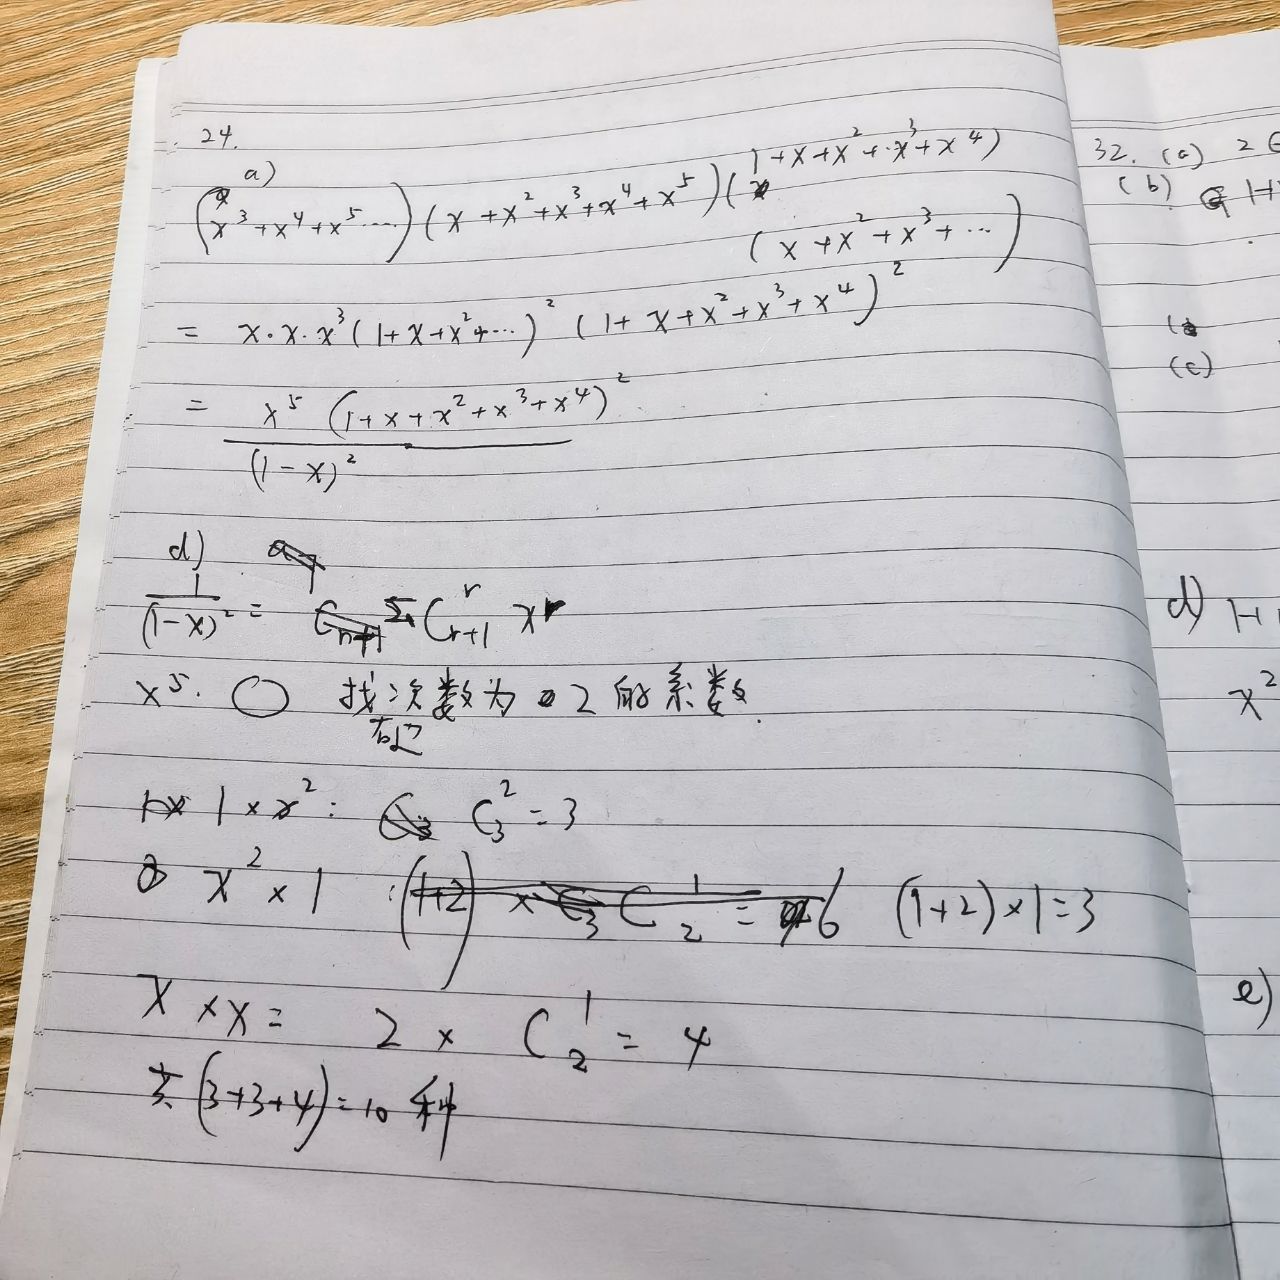 24.
a)
(x³+x⁴+x⁵....)(x+x²+x³+x⁴+x⁵)(1+x+x²+x³+x⁴)
(x+x²+x³+...)
= x·x·x³(1+x+x²+...)² (1+x+x²+x³+x⁴)²
= x⁵(1+x+x²+x³+x⁴)²
(1-x)²
d)
1/(1-x)² = Σ C_{r+1}^{r} x^r
x⁵. ○ 找次数为2的系数.
1×x²: C₃² = 3
x²×1 : (1+2)×1=3
x×x= 2× C₂¹ = 4
共(3+3+4)=10种
32. (a) 2
(b) 1+
(c)
d) 1+
x²
e)